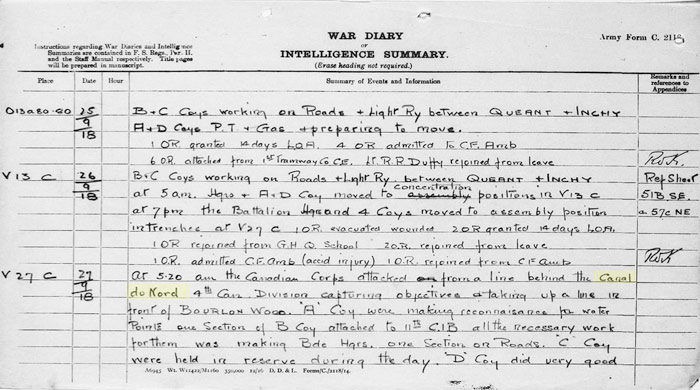 WAR DIARY
or
INTELLIGENCE SUMMARY.
(Erase heading not required.)
Army Form C. 2118.
Instructions regarding War Diaries and Intelligence
Summaries are contained in F. S. Regs., Par. II.
and the Staff Manual respectively. Title pages
will be prepared in manuscript.
Place Date Hour Summary of Events and Information Remarks and references to Appendices
D13a80.60 25/9/18 B+C Coys working on Roads + Light Ry between QUEANT + INCHY
A+D Coys P.T + Gas + preparing to move.
1 OR granted 14 days L.O.A. 4 OR admitted to C.F. Amb
6 OR attached from 1st Tramway Co CE. Lt. R.R Duffy rejoined from leave
V13 C 26/9/18 B+C Coys working on Roads + Light Ry between QUEANT + INCHY Rep Sheet
at 5 am. Hqrs + A+D Coy moved to assembly concentration positions in V13 C 51B. SE.
at 7pm the Battalion Hqrs and 4 Coys moved to assembly position a 57c NE
in trenches at V27 C 1 OR evacuated wounded 2 OR granted 14 days L.O.A.
1 OR rejoined from G.H.Q School 2 OR rejoined from leave
1 OR admitted C.F. Amb (accid injury) 1 OR rejoined from CF Amb
V27 C 27/9/18 At 5.20 am the Canadian Corps attacked from a line behind the Canal
du Nord 4th Can. Division capturing objectives + taking up a line in
front of BOURLON WOOD. 'A' Coy were making reconnaisance for water
Points one Section of B Coy attached to 11th C.I.B all the necessary work
for them was making Bde Hqrs. one Section on Roads. 'C' Coy
were held in reserve during the day. 'D' Coy did very good
D. D. & L. Forms/C./2118/14.